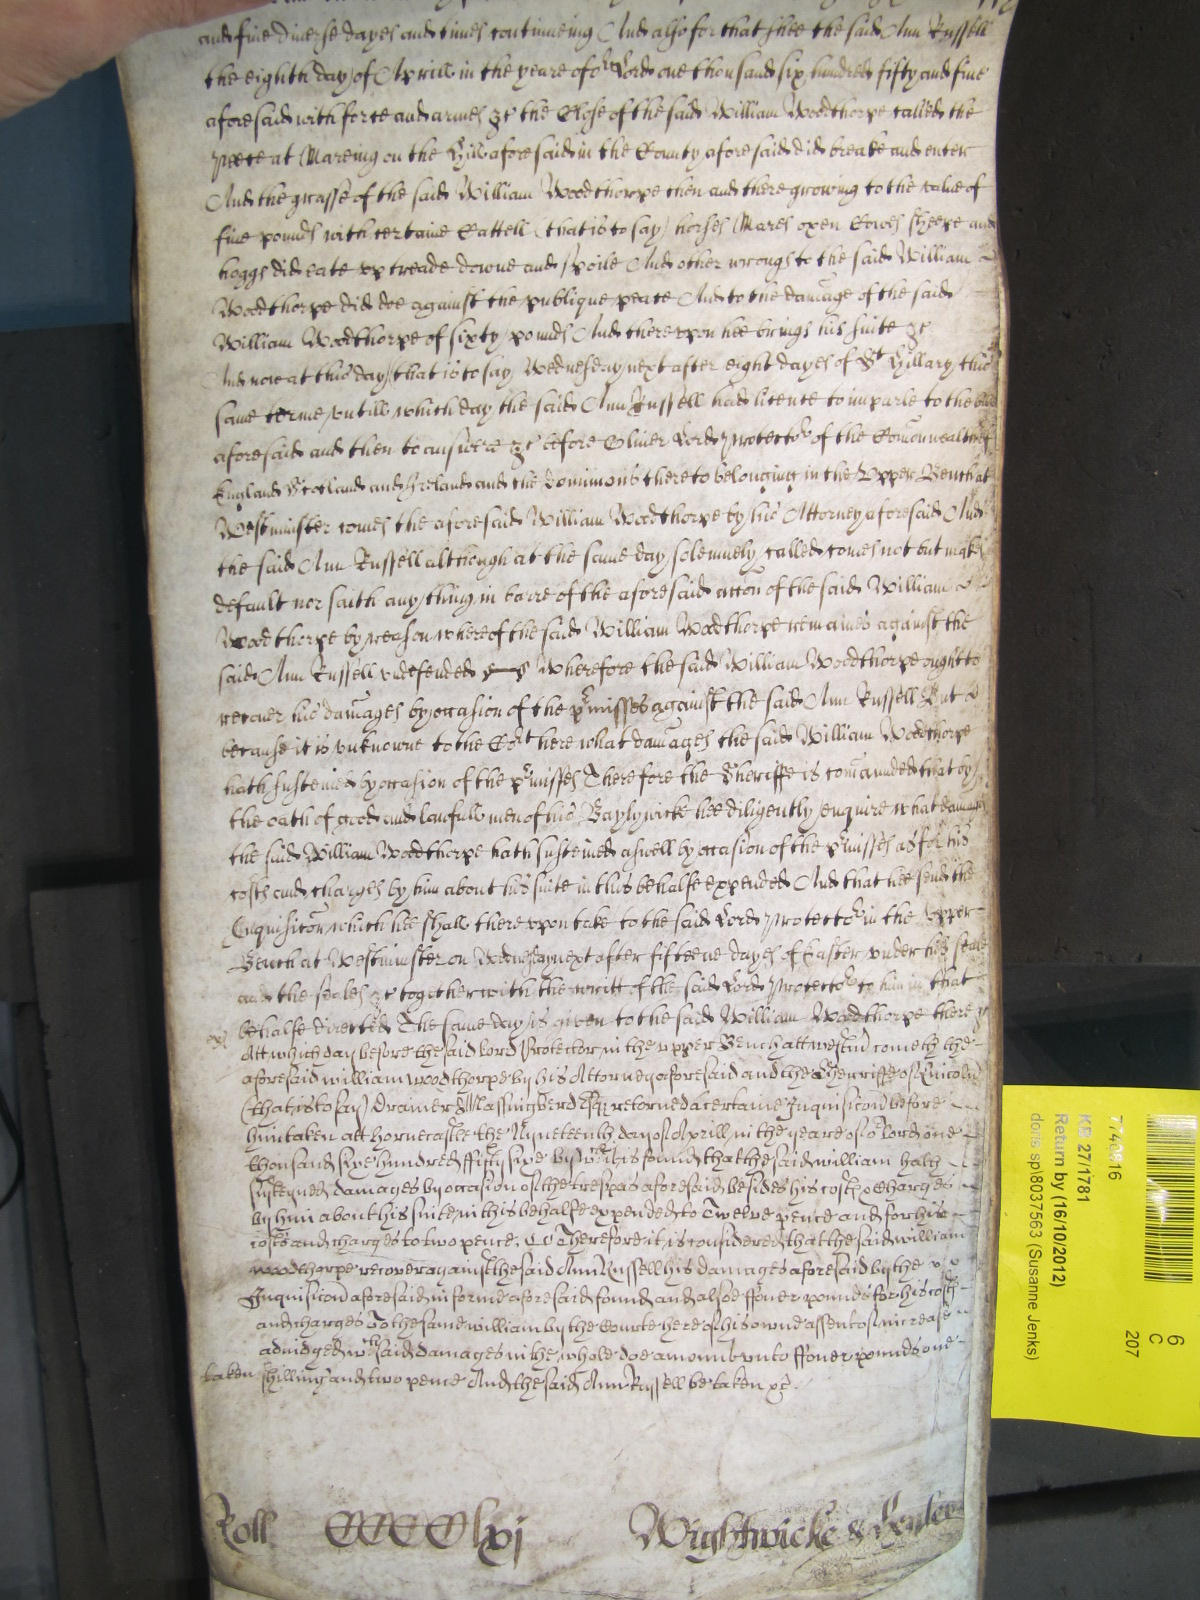 and five diverse dayes and times continueing And also for that shee the said Ann Russell
the eighth day of Aprill in the yeare of or Lord one thousand six hundred fifty and five
aforesaid with force and armes &c the Close of the said William Woodthorpe called the
peece at Mareing on the Hill aforesaid in the County aforesaid did breake and enter
And the grasse of the said William Woodthorpe then and there growing to the value of
five pounds with certaine Cattell (that is to say) horses Mares oxen Cowes sheepe and
hoggs did eate up treade downe and spoile And other wrongs to the said William
Woodthorpe did doe against the publique peace And to the damage of the said
William Woodthorpe of sixty pounds And thereupon hee brings his suite &c
And now at this day (that is to say) Wednesday next after eight dayes of St Hillary this
same terme untill which day the said Ann Russell had licence to imparle to the bill
aforesaid and then to answere &c before Oliver Lord Protector of the Comonwealth of
England Scotland and Ireland and the Dominions thereto belonging in the Upper Bench at
Westminster comes the aforesaid William Woodthorpe by his Attorney aforesaid And
the said Ann Russell although at the same day solemnely called comes not but makes
default nor saith any thing in barre of the aforesaid accon of the said William
Woodthorpe by reason whereof the said William Woodthorpe remaines against the
said Ann Russell undefended Wherefore the said William Woodthorpe ought to
recover his damages by occasion of the pr misses against the said Ann Russell But
because it is unknowne to the Cort here what damages the said William Woodthorpe
hath susteined by occasion of the pr misses Therefore the Sheriffe is comaunded that by
the oath of good and lawfull men of his Baylywicke hee diligently enquire what damages
the said William Woodthorpe hath susteined aswell by occasion of the pr misses as for his
costs and charges by him about his suite in this behalfe expended And that hee send the
Inquisicon which hee shall thereupon take to the said Lord Protector in the Upper
Bench at Westminster on Wednesday next after fifteene dayes of Easter under his seale
and the seales &c together with the writt of the said Lord Protector to him in that
behalfe directed The same day is given to the said William Woodthorpe there &c
Att which day before the said lord Protector in the upper Bench att westmr cometh the
aforesaid william woodthorpe by his Attorney aforesaid and the Sherriffe of Lincolne
(that is to say) Drainer Massingberd Esqr returned a certaine Inquisicon before
him taken att Hornecastle the Nyneteenth day of Aprill in the yeare of or lord one
thousand sixe hundred ffifty sixe by wch it is found that the said william hath
susteyned damages by occasion of the trespas aforesaid besides his costs & charges
by him about his suite in this behalfe expended to Twelve pence and for his
costs and charges to two pence. Therefore it is considered that the said william
woodthorpe recover against the said Ann Russell his damages aforesaid by the
Inquisicon aforesaid in forme aforesaid found and alsoe ffower pounds for his costs
and charges To the same william by the Courte here of his owne assent of increase
adiudged wch said damages in the whole doe amount unto ffower pounds one
taken shilling and two pence And the said Ann Russell be taken &c.
Roll CCCClxj Wightwicke &
7740816
KB 27/1781
Return by (16/10/2012)
doris sp\8037563 (Susanne Jenks)
6
C
207